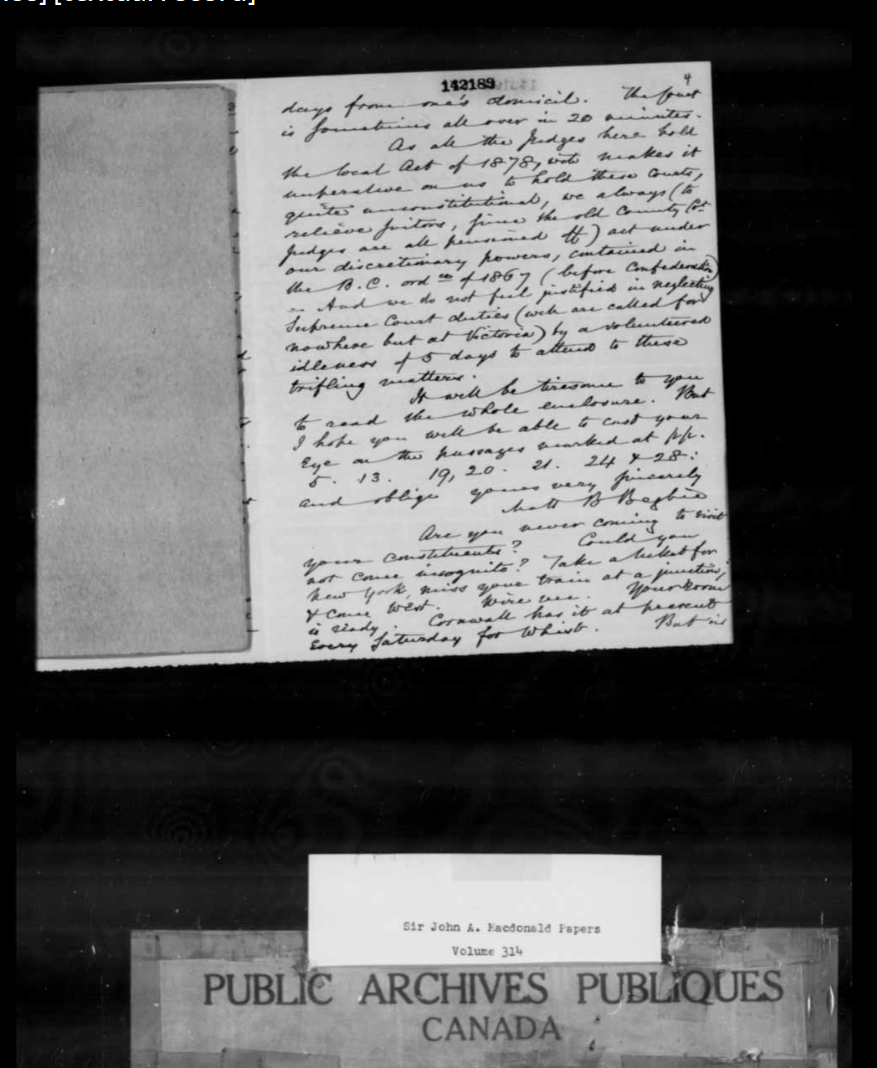 142189
4
days from one's domicil. The Court
is sometimes all over in 20 minutes.
As all the Judges here hold
the local Act of 1878, wch makes it
imperative on us to hold these Courts,
quite unconstitutional, we always (to
relieve suitors, since the old County Cot
Judges are all pensioned off) act under
our discretionary powers, contained in
the B.C. ord ce of 1867 (before Confederation)
- And we do not feel justified in neglecting
Supreme Court duties (wch are called for
nowhere but at Victoria) by a volunteered
idleness of 5 days to attend to these
trifling matters.
It will be tiresome to you
to read the whole enclosure. But
I hope you will be able to cast your
Eye on the passages marked at pp.
5. 13. 19, 20. 21. 24 & 28:
and oblige yours very sincerely
Matt B Begbie
Are you never coming to visit
your constituents? Could you
not come incognito? Take a ticket for
New York, miss your train at a junction,
& come West. Wire me. Your room
is ready. Cornwall has it at present
Every Saturday for Whist. But is
Sir John A. Macdonald Papers
Volume 314
PUBLIC ARCHIVES PUBLIQUES
CANADA